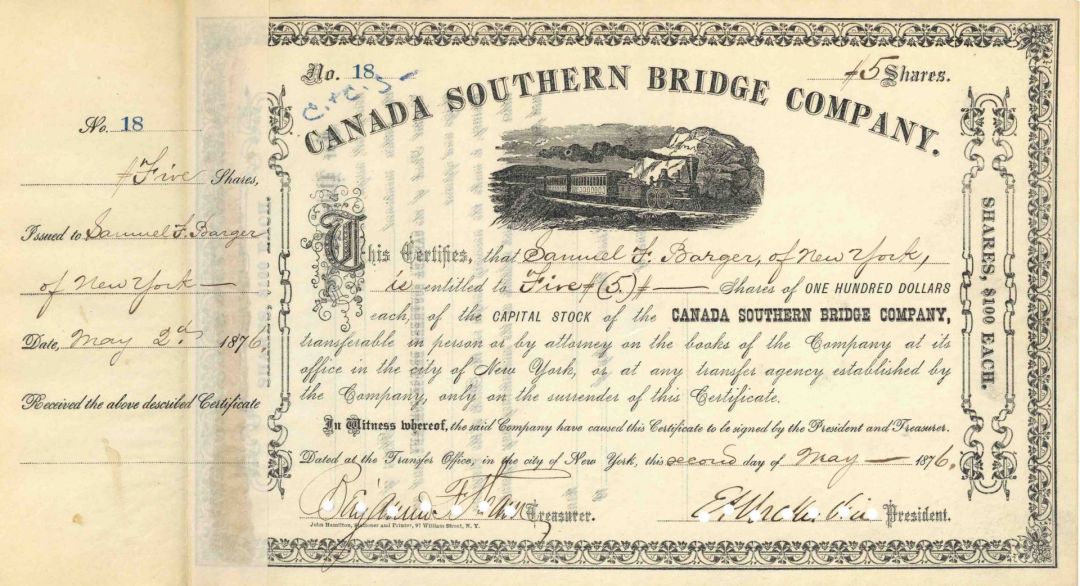 No. 18
Five Shares,
Issued to Samuel F. Barger
of New York
Date, May 2d 1876.
Received the above described Certificate
No. 18
5 Shares.
CANADA SOUTHERN BRIDGE COMPANY.
This Certifies, that Samuel F. Barger, of New York,
is entitled to Five (5) Shares of ONE HUNDRED DOLLARS
each, of the CAPITAL STOCK of the CANADA SOUTHERN BRIDGE COMPANY,
transferable in person or by attorney on the books of the Company at its
office in the city of New York, or at any transfer agency established by
the Company, only on the surrender of this Certificate.
In Witness whereof, the said Company have caused this Certificate to be signed by the President and Treasurer.
Dated at the Transfer Office, in the city of New York, this second day of May 1876.
Treasurer.
President.
John Hamilton, Stationer and Printer, 97 William Street, N. Y.
SHARES, $100 EACH.